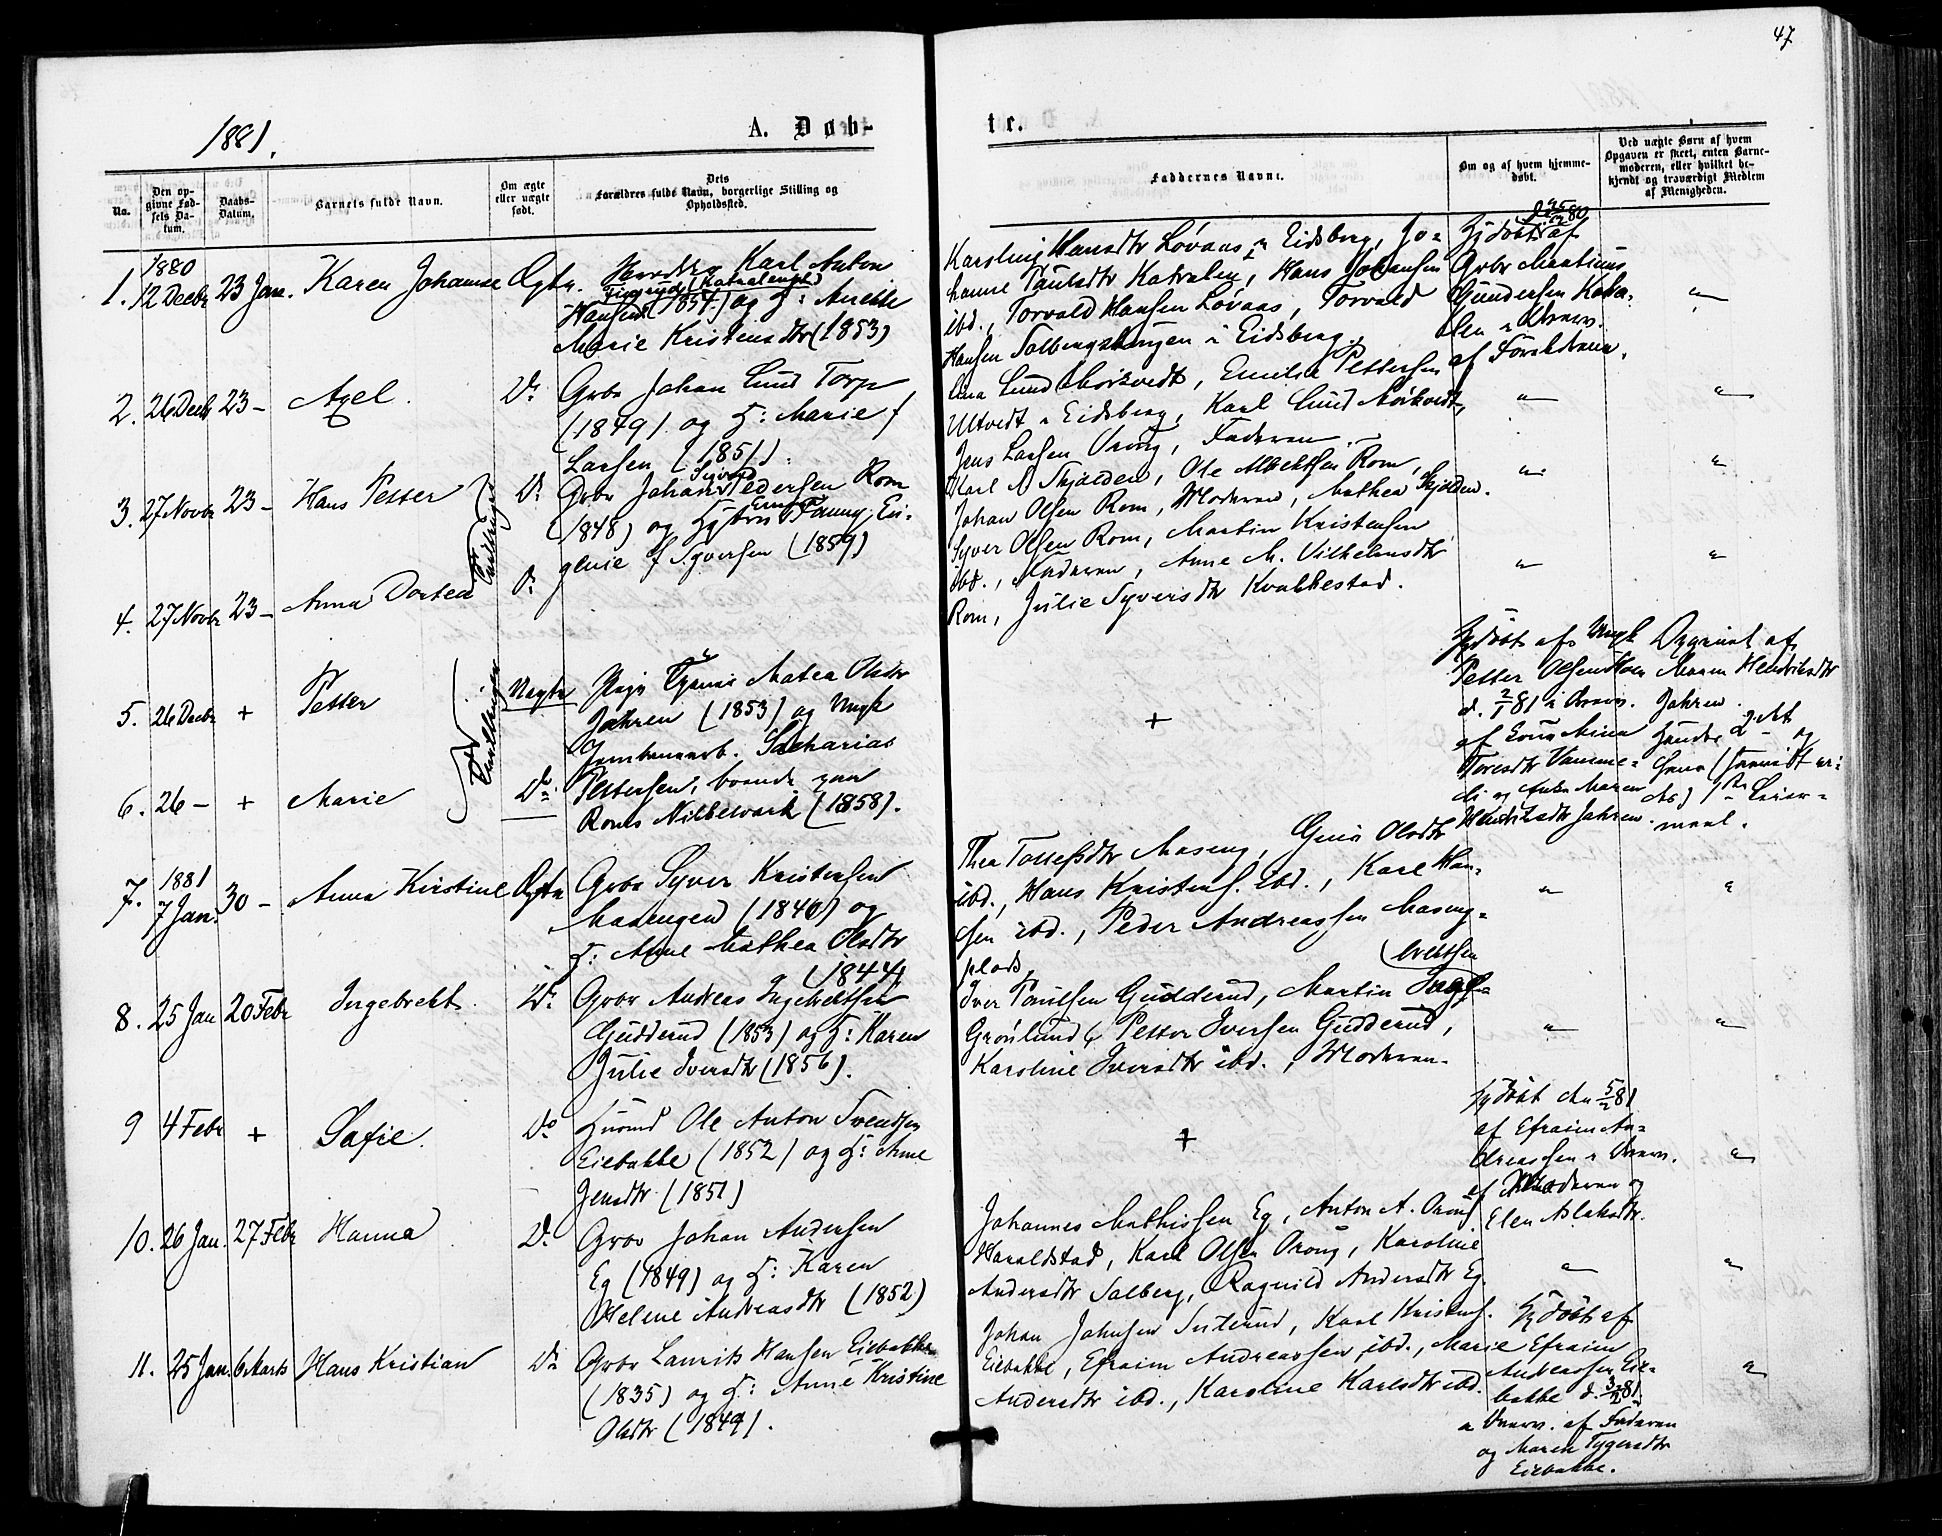 47
1881.
A. Døb-
te.
No.
Den op-
givne Fød-
sels Da-
tum.
Daabs-
Datum.
Barnets fulde Navn.
Om ægte
eller uægte
født.
Dets
Forældres fulde Navn, borgerlige Stilling og
Opholdssted.
Faddernes Navne.
Om og af hvem hjemme-
døbt.
Ved uægte Børn af hvem
Opgaven er skeet, enten Barne-
moderen, eller hvilket be-
kjendt og troværdigt Medlem
af Menigheden.
1880
1. 12 Decbr 23 Jan. Karen Johanne Ægte.
Karl Anton
Hansen (1854) og H: Anette
Marie Kristensdtr (1853)
Hansdtr Løvaas i Eidsberg, Jo-
hanne Paulsdtr Katralen, Hans Johansen
ibd., Torvald Hansen Løvaas, Torvald
Hansen Solbergskingen i Eidsberg.
Hjdøbt af
Grbr Martinus
Gundersen Katra-
len i Overv.
af Forældrene.
"
2. 26 Decbr 23 – Axel. Do
Grbr Johan Lund Torp
(1849) og H: Marie f
Larsen (1851).
Lina Lund Morkvedt, Emilie Pettersen
Ultvedt i Eidsberg, Karl Lund Morkvedt,
Jens Larsen Vrong, Faderen.
" "
3. 27 Novbr 23 – Hans Petter Do
Tvillinger
Grbr Johan Pedersen Rom
(1848) og Hustru Fanny Eu-
genie f Syversen (1859)
Karl A Skjolden, Ole Albertsen Rom,
Johan Olsen Rom, Moderen, Mathea Skjolden.
" "
4. 27 Novbr 23 – Anna Dortea Do
Syver Olsen Rom, Martin Kristensen
ibd., Faderen, Anne M. Vilhelmsdtr
Rom, Julie Syversdtr Kvakkestad.
" "
5. 26 Decbr + Petter Uægte
Tvillinger
Pige Matea Olsdtr
Jahren (1853) og Ungk
Jernbanearb. Sacharias
Pettersen, boende paa
Roms Nikkelværk (1858).
+
Hjdøbt af Ungk
Petter Olsen
d. 2/1 81 i Overv.
af Mina
Toresdtr
og Enke Maren
Hendriksdtr Jahren.
Opgivet af
Maren Hendriksdtr
Jahren.
Hendes 2det og
hans
1ste Leier-
maal.
6. 26 – + Marie Do
1881
7. 7 Jan. 30 – Anna Kirstine Ægte
Grbr Syver Kristensen
Masengen (1840) og
H: Anne Mathea Olsdtr
(1844)
Thea Tollefsdtr Maseng, Gina Olsdtr
ibd., Hans Kristens. ibd., Karl Han-
sen ibd., Peder Andreassen Maseng-
plads
" "
8. 25 Jan 20 Febr Ingebrekt. Do
Grbr Andreas Ingebrektsen
Gudderud (1853) og H: Karen
Julie Iversdtr (1856).
Iver Paulsen Gudderud, Martin Inge-
brektsen
Grønlund, Petter Iversen Gudderud,
Karoline Iversdtr ibd., Moderen.
" "
9 4 Febr + Sofie. Do
Husmd Ole Anton Svendsen
Eiebakke (1852) og H: Anne
Jensdtr (1851)
+
Hjdøbt den 5/2 81
af Efraim An-
dreassen i Overv.
af Moderen og
Elen Aslaksdtr.
"
10. 26 Jan. 27 Febr Hanna Do
Grbr Johan Andersen
Eg (1849) og H: Karen
Helene Andreasdtr (1852)
Johannes Mathissen Eg, Anton A.
Haraldstad, Karl Olsen Vrong, Karoline
Andersdtr Solberg, Ragnild Andersdtr Eg.
" "
11. 25 Jan. 6 Marts Hans Kristian Do
Grbr Laurits Hansen Eiebakke
(1835) og H: Anne Kristine
Olsdtr (1849).
Johan Johnsen, Karl Kristens.
Eiebakke, Efraim Andreassen ibd., Marie
Andersdtr ibd., Karoline Karlsdtr ibd.
Hjdøbt af
Efraim
Andreassen Eie-
bakke d. 3/2 81
i Overv. af Faderen
og Maren Tygersdtr
Eiebakke.
"